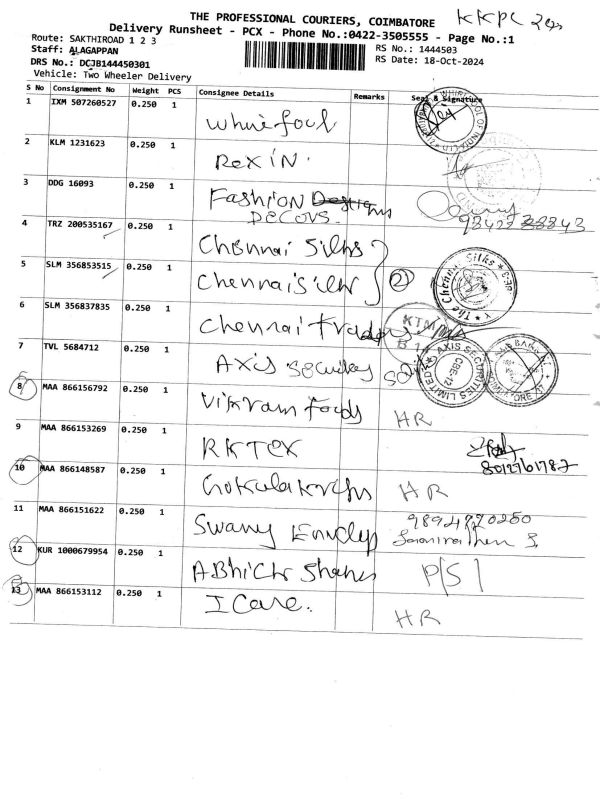 THE PROFESSIONAL COURIERS, COIMBATORE KKPC
Delivery Runsheet - PCX - Phone No.:0422-3505555 - Page No.:1
Route: SAKTHIROAD 1 2 3
Staff: ALAGAPPAN
RS No.: 1444503
DRS No.: DCJB144450301
RS Date: 18-Oct-2024
Vehicle: Two Wheeler Delivery
S No Consignment No Weight PCS Consignee Details Remarks Seal & Signature
1 IXM 507260527 0.250 1 Whirlfoul
2 KLM 1231623 0.250 1 REXIN.
3 DDG 16093 0.250 1 Fashion Designs
DECORS.
4 TRZ 200535167 0.250 1 Chennai Silks
5 SLM 356853515 0.250 1 Chennai Silk 2 The Chennai Silks
6 SLM 356837835 0.250 1 Chennai Traders
7 TVL 5684712 0.250 1 Axis Securities AXIS SECURITIES LIMITED CBE-12
8 MAA 866156792 0.250 1 Vikram Foods HR
9 MAA 866153269 0.250 1 RKTEX
8012761787
10 MAA 866148587 0.250 1 HR
11 MAA 866151622 0.250 1 Swamy 9894770250
12 KUR 1000679954 0.250 1 Abhi Shares P/S/
13 MAA 866153112 0.250 1 I Care. HR